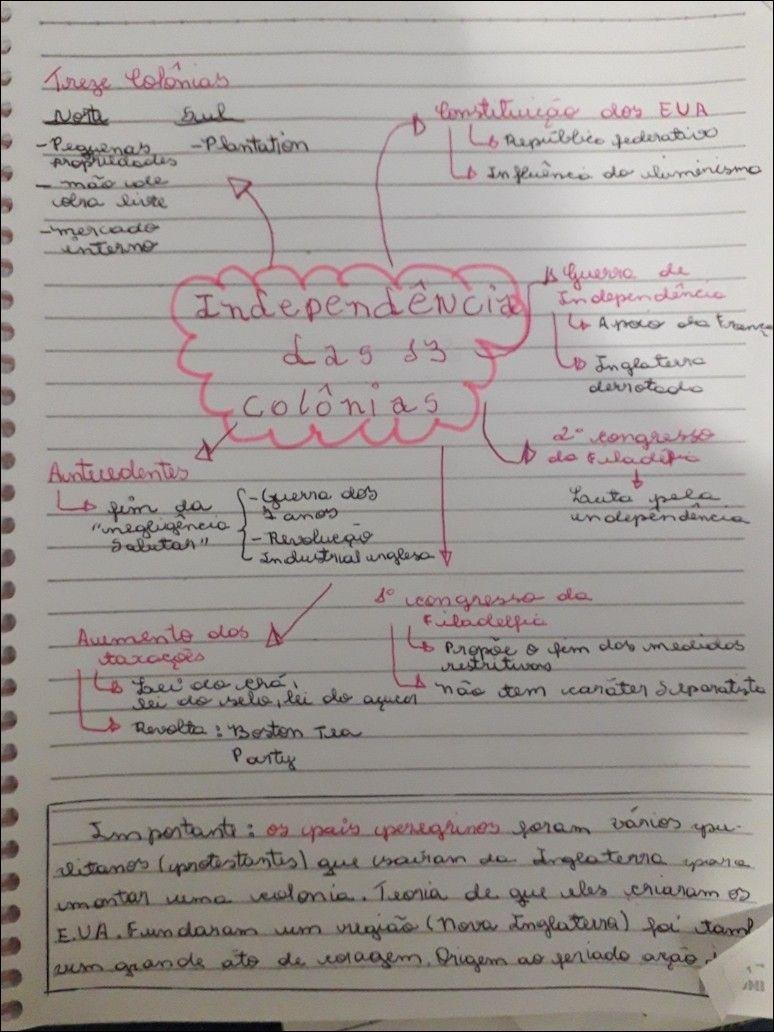 Treze Colônias
Norte Sul
- Pequenas propriedades
- Plantation
- mão de
obra livre
- mercado
interno
Constituição dos EUA
República federativa
Influência do iluminismo
Independência
das 13
colônias
Guerra de
Independência
Apoio da França
Inglaterra
derrotada
2º congresso
da Filadélfia
Luta pela
independência
Antecedentes
fim da
"negligência
Salutar"
- Guerra dos
7 anos
- Revolução
Industrial inglesa
1º congresso da
Filadélfia
Propõe o fim das medidas
restritivas
não tem caráter separatista
Aumento das
taxações
Lei do chá,
lei do selo, lei do açucar
Revolta: Boston Tea
Party
Importante: os pais peregrinos foram vários pu-
ritanos (protestantes) que sairam da Inglaterra para
montar uma colonia. Teoria de que eles criaram os
E.U.A. Fundaram um região (Nova Inglaterra) foi tam
um grande ato de coragem. Origem ao feriado ação